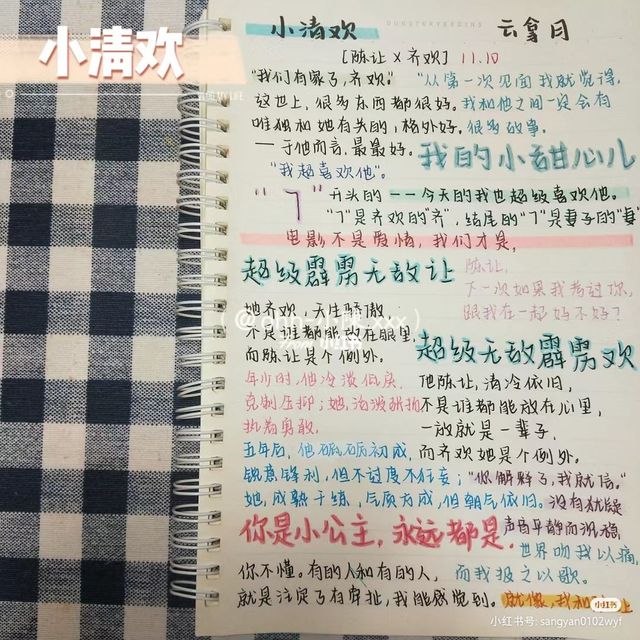 小清欢
YOU MY LIFE
小清欢
云拿月
[陈让 x 齐欢] 11.10
"我们有家了,齐欢。"
"从第一次见面我就觉得,
这世上,很多东西都很好。
我和他之间一定会有
唯独和她有关的,格外好。
很多故事。
一于他而言,最最好。
我的小甜心儿
"我超喜欢他"。
"7"
开头的——今天的我也超级喜欢他。
"7"是齐欢的"齐",结尾的"7"是妻子的"妻"
电影不是爱情,我们才是。
超级霹雳无敌让
陈让,
下一次如果我考过你,
跟我在一起好不好?
她齐欢,天生骄傲
不是谁都能放在眼里,
而陈让是个例外。
超级无敌霹雳欢
年少时,他冷淡低戾
克制压抑;她,活泼张扬
热着勇敢
他陈让,清冷依旧,
不是谁都能放在心里,
一放就是一辈子,
而齐欢她是个例外。
五年后,他砥砺初成,
锐意锋利,但不过度不狂妄;
她,成熟干练,气质方成,但朝气依旧。
"你解释了,我就信。"
没有犹疑
声音平静而沉稳
你是小公主,永远都是。
世界吻我以痛,
而我报之以歌。
你不懂。有的人和有的人,
就是注定了有牵扯,我能感觉到。
就像,我和
小红书
小红书号: sangyan0102wyf